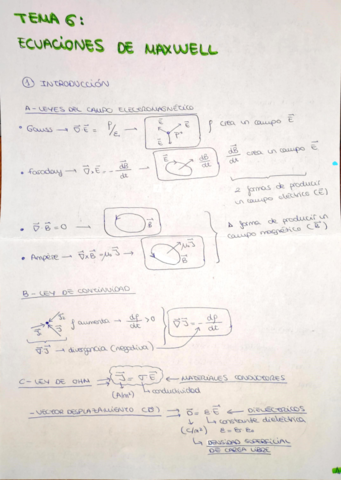 TEMA 6:
ECUACIONES DE MAXWELL
① INTRODUCCIÓN
A - LEYES DEL CAMPO ELECTROMAGNÉTICO
• Gauss → ∇⃗ E⃗ = ρ/ε₀ → E⃗ E⃗ ρ E⃗ ρ crea un campo E⃗
• Faraday → ∇⃗ x E⃗ = - dB⃗/dt → E⃗ dB⃗/dt dB⃗/dt crea un campo E⃗
2 formas de producir un
campo eléctrico (E⃗)
• ∇⃗ B⃗ = 0 → B⃗
1 forma de producir un
campo magnético (B⃗)
• Ampère → ∇⃗ x B⃗ = μJ⃗ → μJ⃗ B⃗
B - LEY DE CONTINUIDAD
ρ aumenta → dρ/dt > 0 ∇⃗ J⃗ = - dρ/dt
∇⃗ J⃗ → divergencia (negativa)
C - LEY DE OHM → J⃗ = σ E⃗ ← MATERIALES CONDUCTORES
(A/m²) conductividad
- VECTOR DESPLAZAMIENTO (D⃗) → D⃗ = ε E⃗ ← DIELÉCTRICOS
(C/m²) constante dieléctrica
DENSIDAD SUPERFICIAL
DE CARGA LIBRE